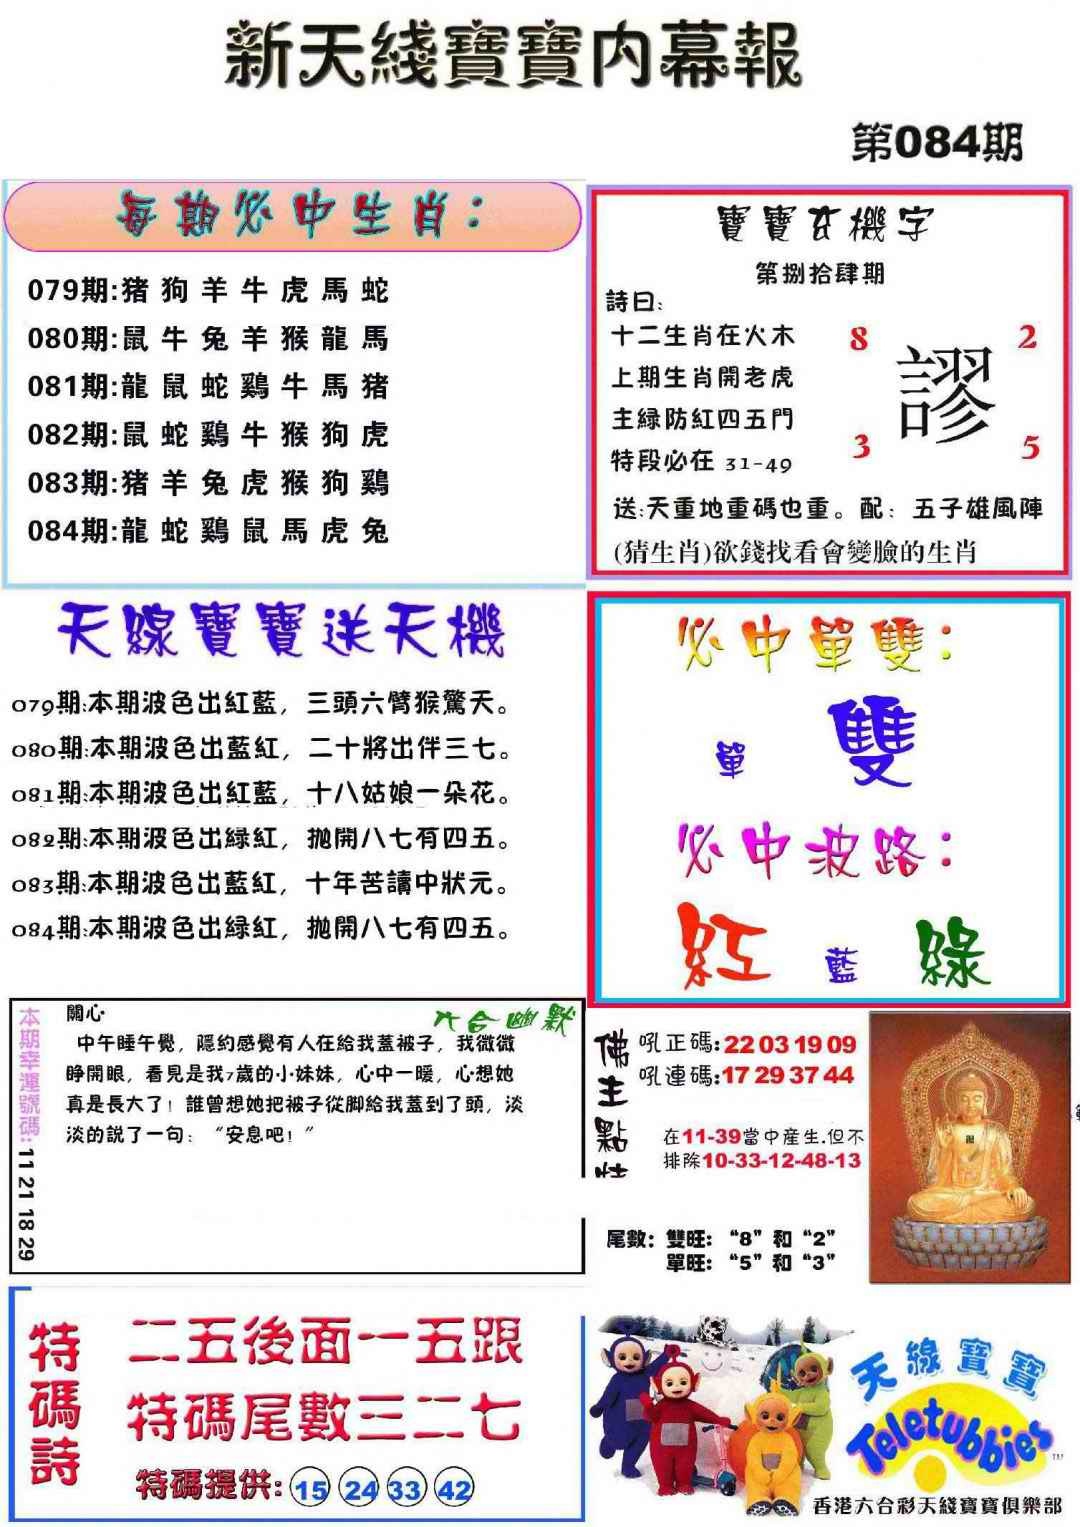 新天綫寶寶内幕報
第084期
每期必中生肖：
079期:猪狗羊牛虎馬蛇
080期:鼠牛兔羊猴龍馬
081期:龍鼠蛇鷄牛馬猪
082期:鼠蛇鷄牛猴狗虎
083期:猪羊兔虎猴狗鷄
084期:龍蛇鷄鼠馬虎兔
寶寶玄機字
第捌拾肆期
詩曰:
十二生肖在火木
上期生肖開老虎
主緑防紅四五門
特段必在 31-49
8 2
謬
3 5
送:天重地重碼也重。配：五子雄風陣
(猜生肖)欲錢找看會變臉的生肖
天線寶寶送天機
079期:本期波色出紅藍，三頭六臂猴驚天。
080期:本期波色出藍紅，二十將出伴三七。
081期:本期波色出紅藍，十八姑娘一朵花。
082期:本期波色出緑紅，抛開八七有四五。
083期:本期波色出藍紅，十年苦讀中狀元。
084期:本期波色出緑紅，抛開八七有四五。
必中單雙：
單 雙
必中波路：
紅 藍 綠
本期幸運號碼: 11 21 18 29
六合幽默
關心
中午睡午覺，隱約感覺有人在給我蓋被子，我微微
睁開眼，看見是我7歲的小妹妹，心中一暖，心想她
真是長大了！誰曾想她把被子從脚給我蓋到了頭，淡
淡的說了一句："安息吧！"
佛主點特
吼正碼:22 03 19 09
吼連碼:17 29 37 44
在11-39當中産生.但不
排除10-33-12-48-13
尾數：雙旺："8"和"2"
單旺："5"和"3"
特碼詩
二五後面一五跟
特碼尾數三二七
特碼提供: 15 24 33 42
天線寶寶
Teletubbies
TM
香港六合彩天綫寶寶俱樂部